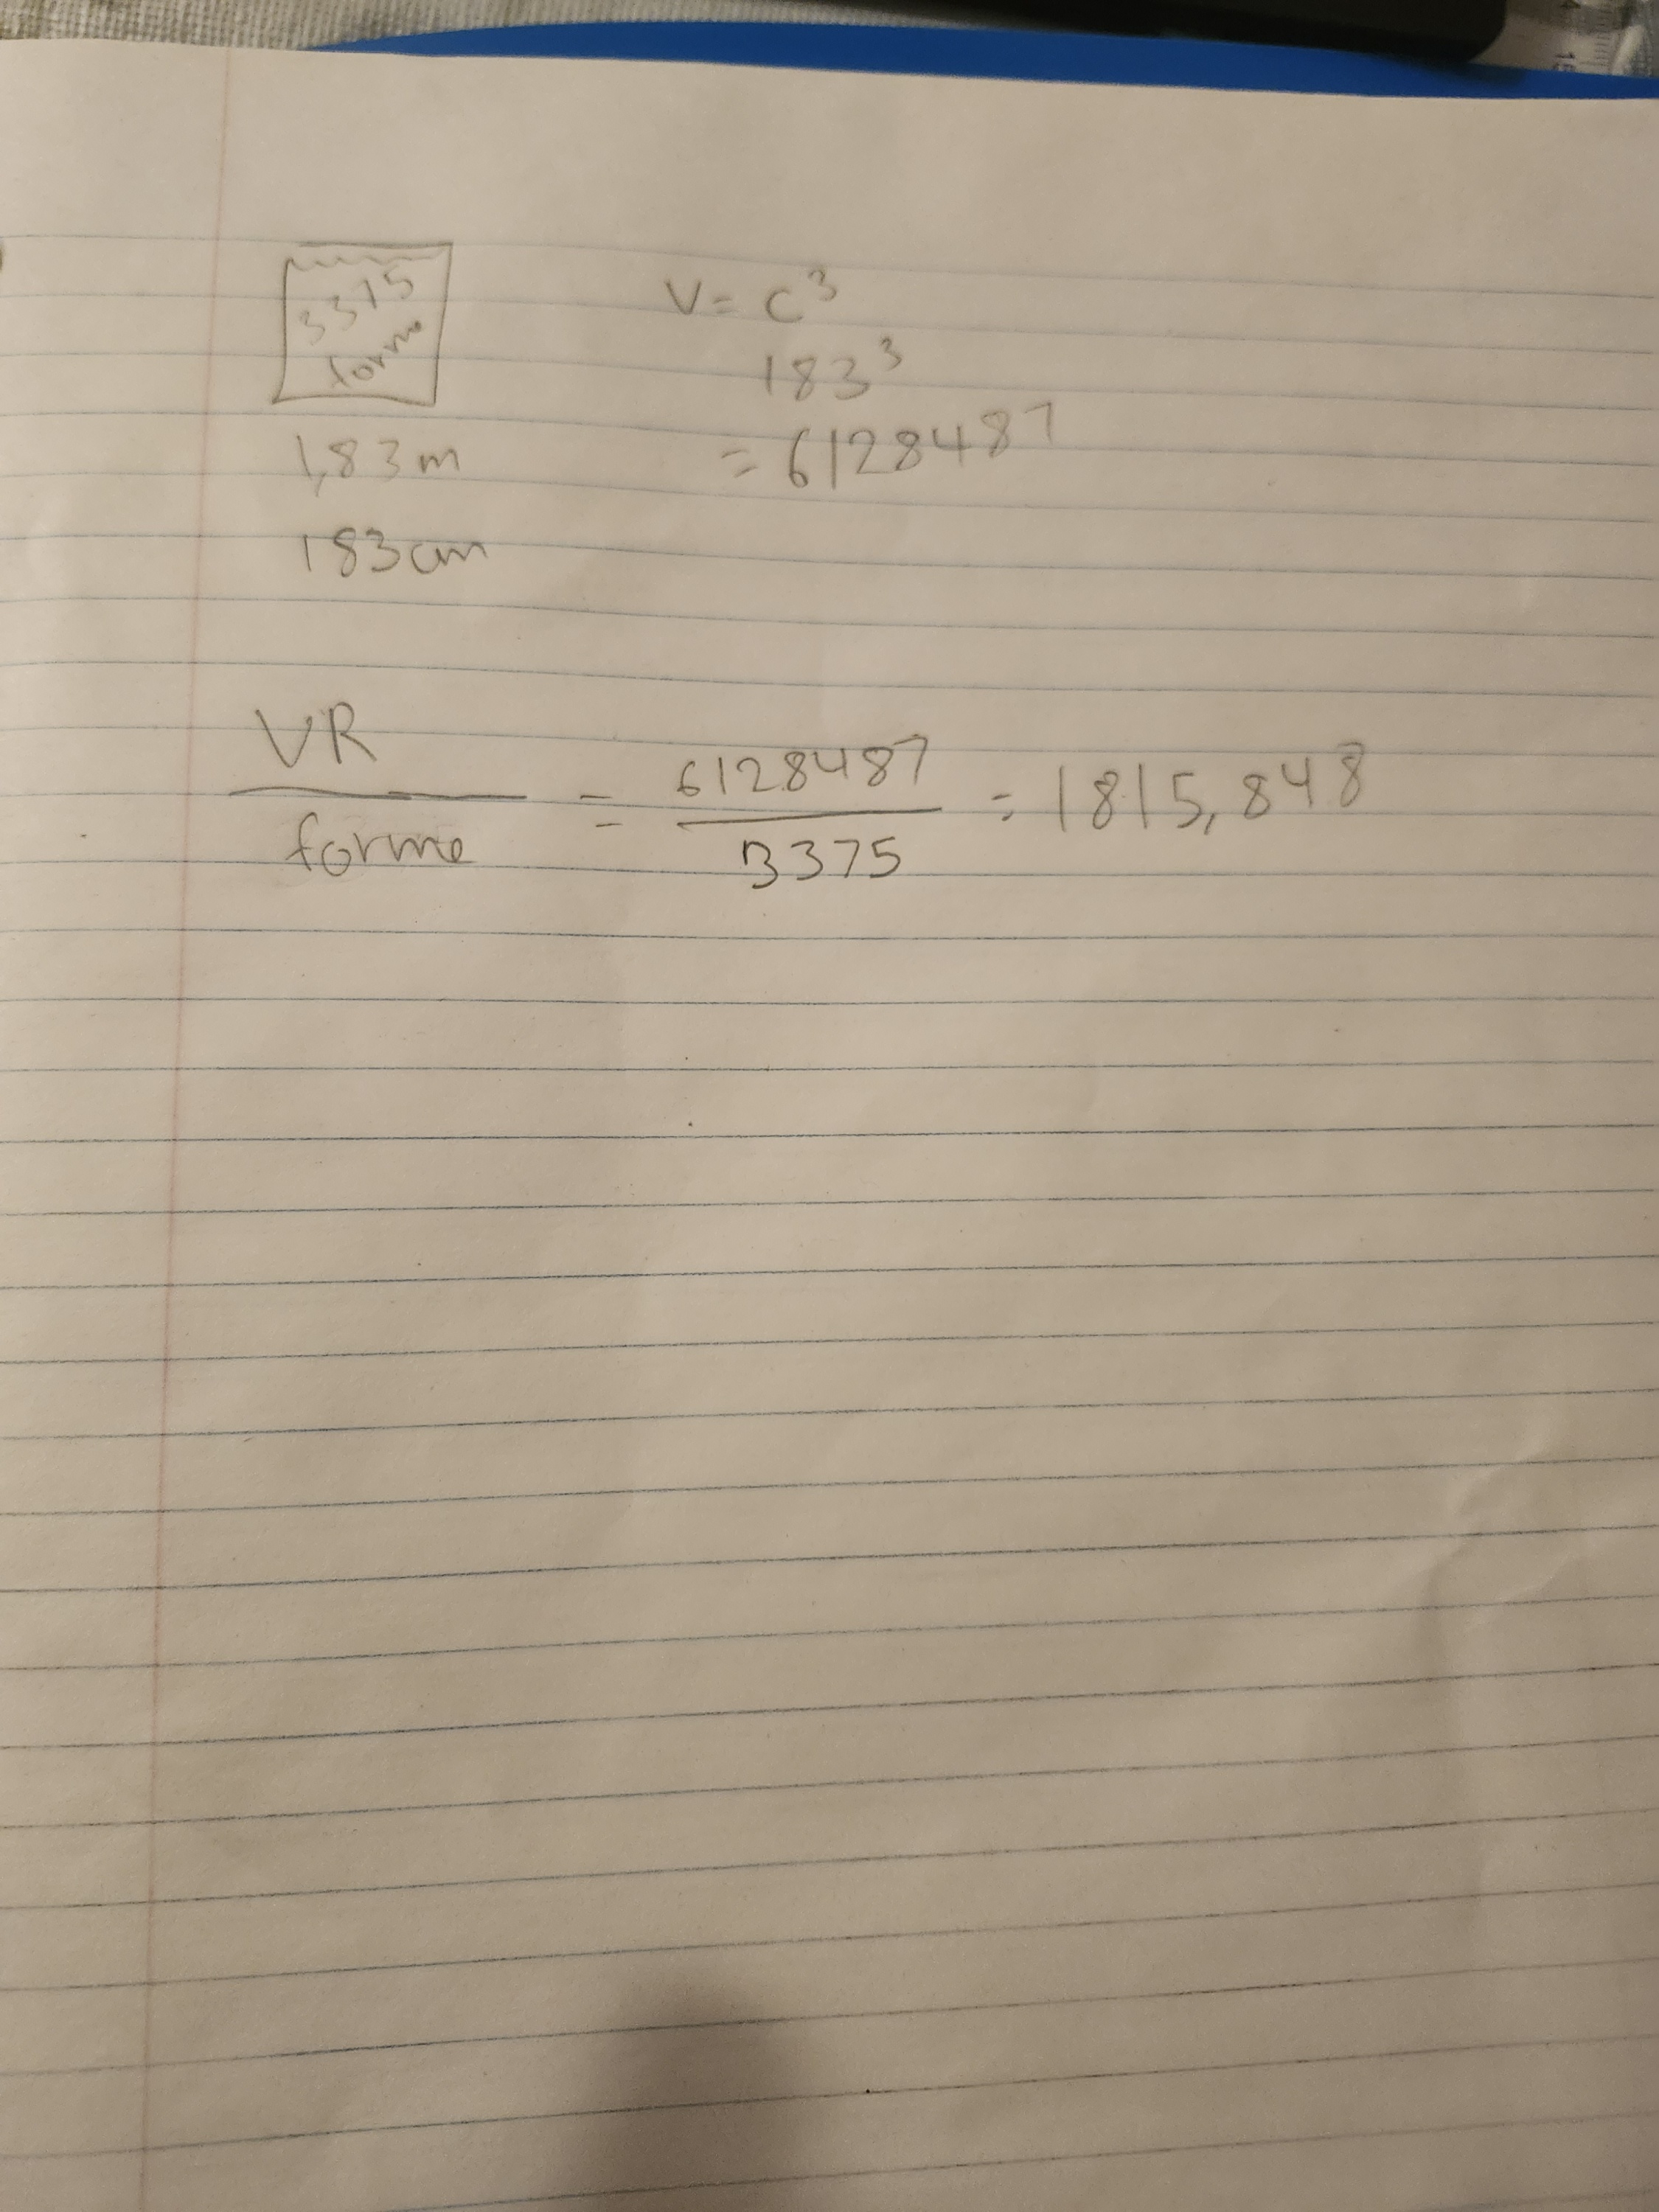 3375
forme
1,83m
183cm
V = C³
183³
= 6128487
VR
forme
= 6128487
3375
= 1815,848